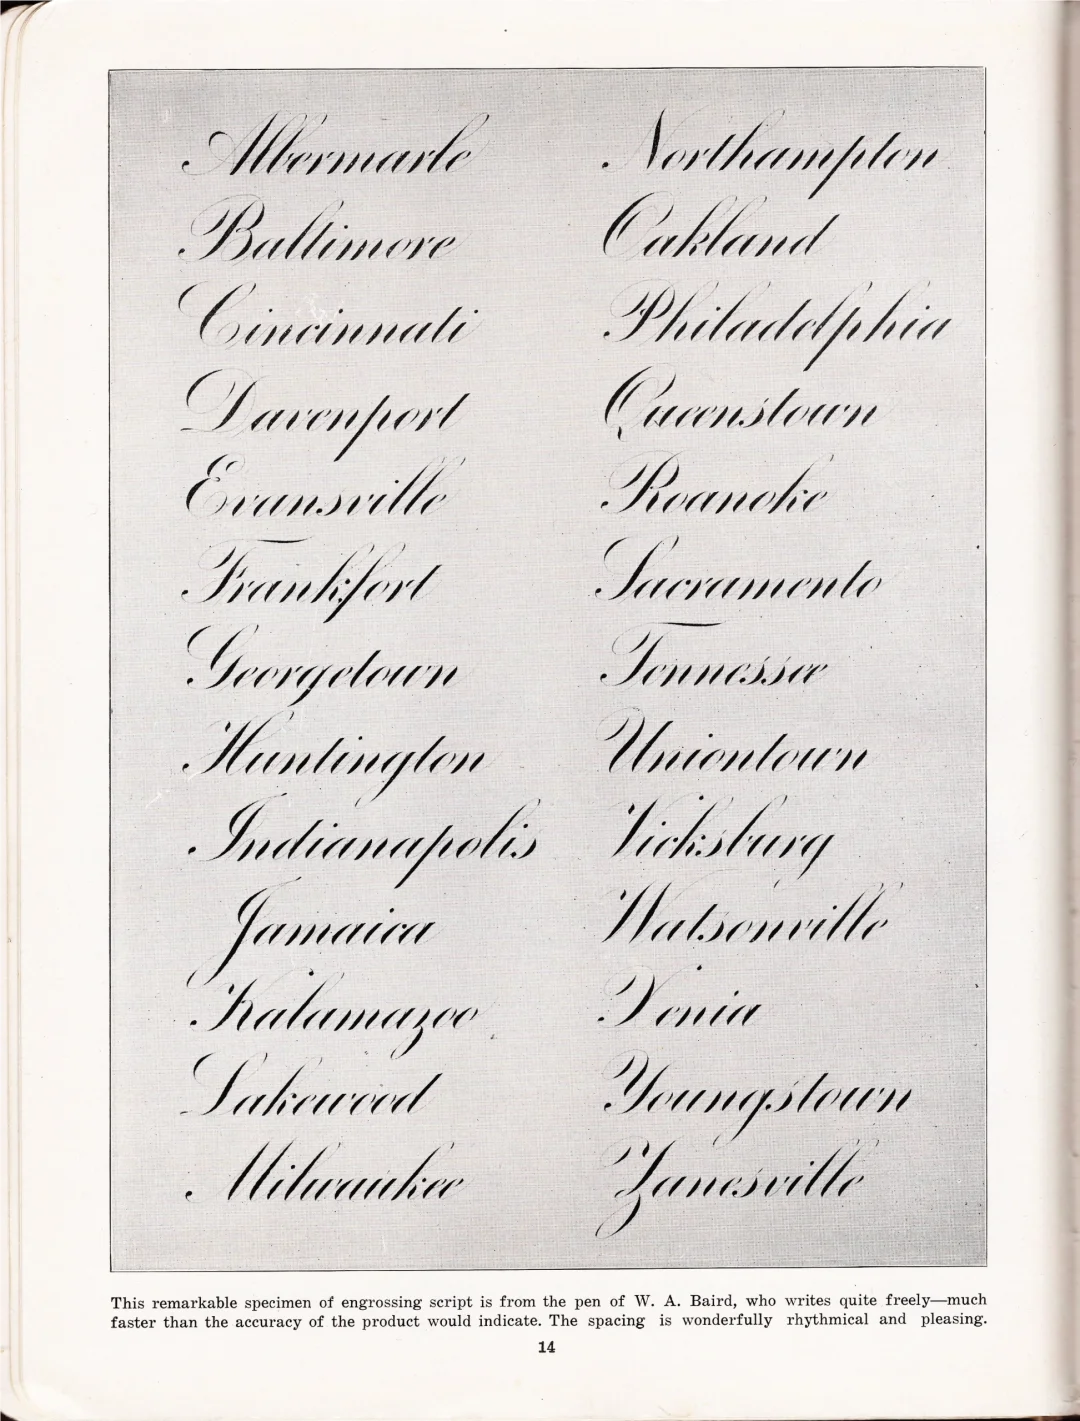 Albermarle
Baltimore
Cincinnati
Davenport
Evansville
Frankfort
Georgetown
Huntington
Indianapolis
Jamaica
Kalamazoo
Lakewood
Milwaukee
Northampton
Oakland
Philadelphia
Queenstown
Roanoke
Sacramento
Tennessee
Uniontown
Vicksburg
Watsonville
Xenia
Youngstown
Zanesville
This remarkable specimen of engrossing script is from the pen of W. A. Baird, who writes quite freely—much
faster than the accuracy of the product would indicate. The spacing is wonderfully rhythmical and pleasing.
14